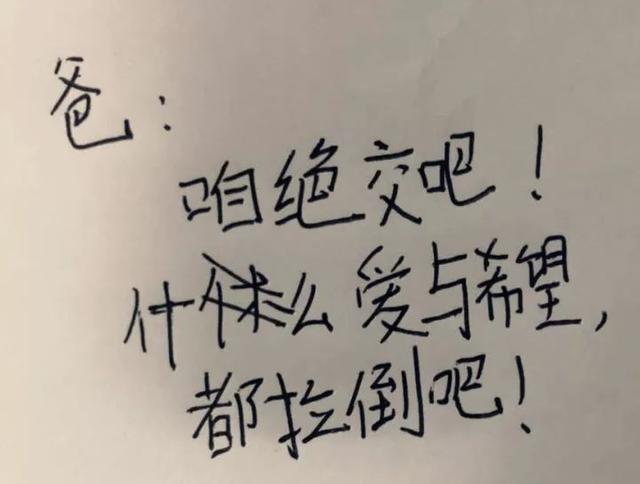 爸:
咱绝交吧!
什么爱与希望,
都拉倒吧!